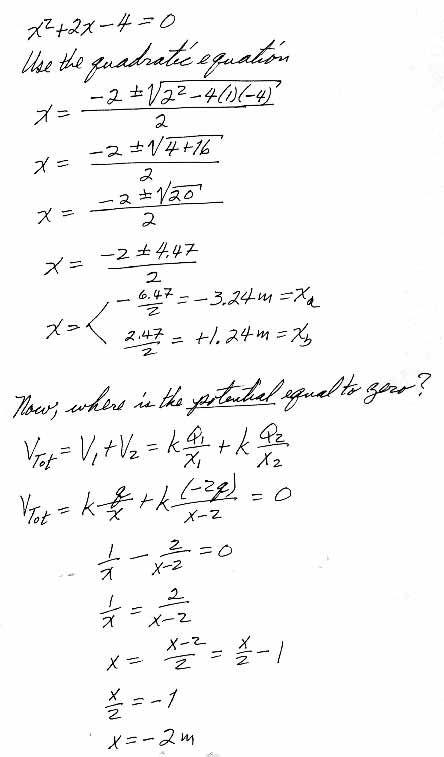 x²+2x-4=0
Use the quadratic equation
x = (-2 ± √(2²-4(1)(-4)))/2
x = (-2 ± √(4+16))/2
x = (-2 ± √20)/2
x = (-2 ± 4.47)/2
x = < -6.47/2 = -3.24m = xₐ
2.47/2 = +1.24m = x_b
Now, where is the potential equal to zero?
V_Tot = V₁+V₂ = k Q₁/x₁ + k Q₂/x₂
V_Tot = k q/x + k (-2q)/(x-2) = 0
1/x - 2/(x-2) = 0
1/x = 2/(x-2)
x = (x-2)/2 = x/2 - 1
x/2 = -1
x = -2m